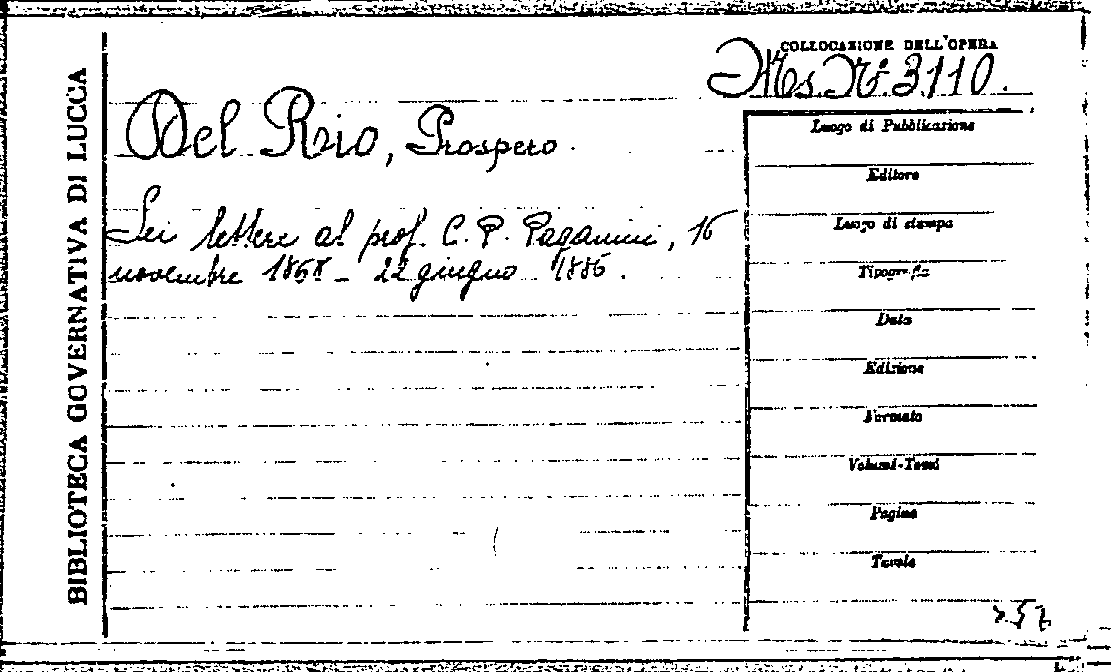 BIBLIOTECA GOVERNATIVA DI LUCCA
COLLOCAZIONE DELL'OPERA
Ms. N.º 3110.
Del Rio, Prospero.
Sei lettere al prof. C. P. Paganini, 16
novembre 1858 - 22 giugno 1886.
Luogo di Pubblicazione
Editore
Luogo di stampa
Tipografia
Data
Edizione
Formato
Volumi-Tomi
Pagine
Tavole